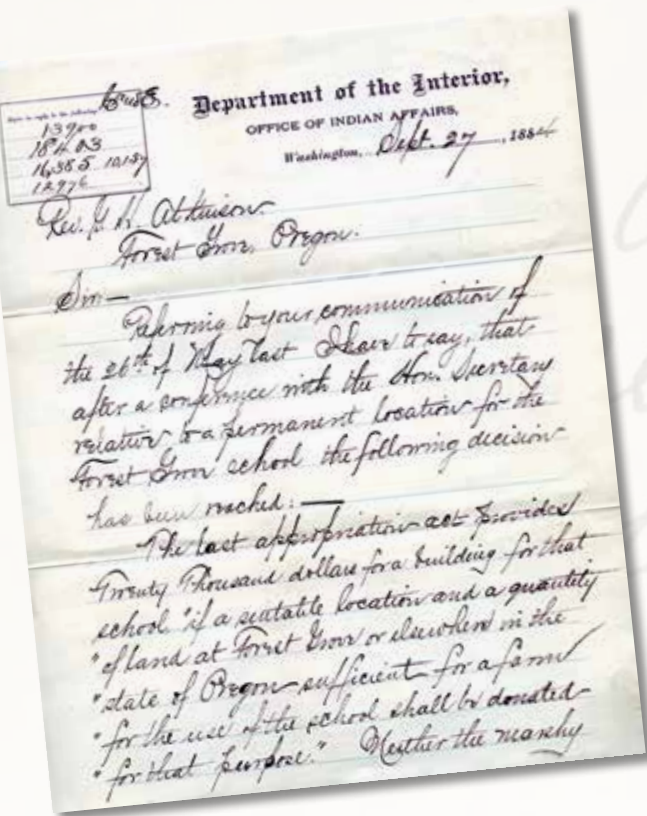 Department of the Interior,
OFFICE OF INDIAN AFFAIRS,
Washington, Sept. 27, 1884
13900
18403
16,385 10,137
12976
Rev. G. H. Atkinson.
Forest Grove, Oregon.
Sir:—
Referring to your communication of
the 26th of May last I have to say, that
after a conference with the Hon. Secretary
relative to a permanent location for the
Forest Grove school the following decision
has been reached:—
The last appropriation act provides
Twenty Thousand dollars for a building for that
school "if a suitable location and a quantity
"of land at Forest Grove or elsewhere in the
"state of Oregon sufficient for a farm
"for the use of the school shall be donated
"for that purpose." Neither the marshy